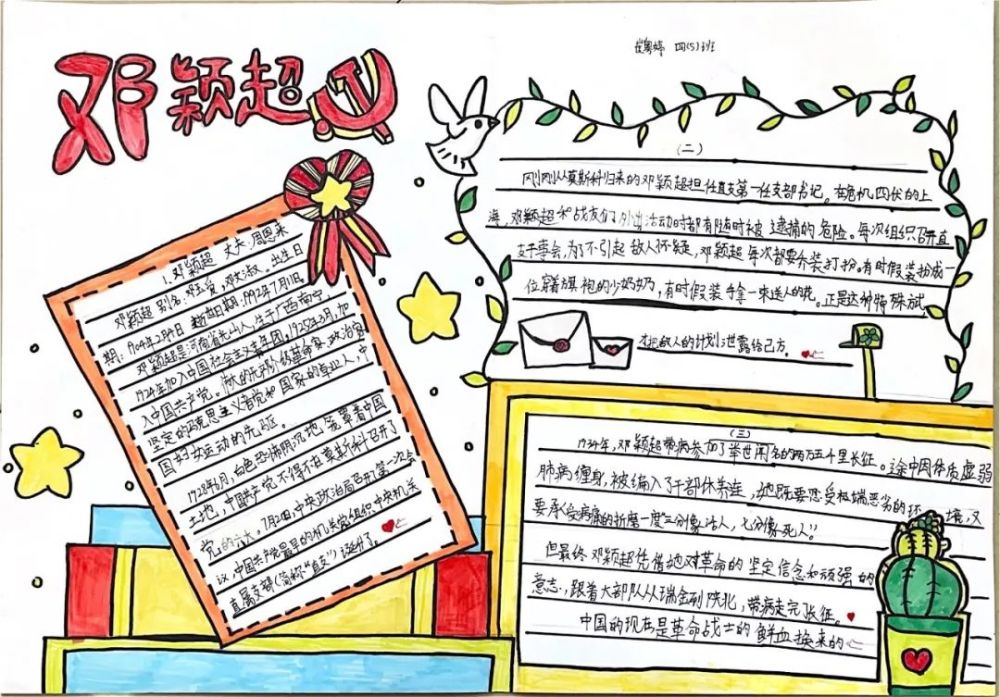 邓颖超
四(5)班
1.邓颖超 丈夫:周恩来
邓颖超 别名:邓玉爱,邓文淑。出生日
期:1904年2月4日 逝世日期:1992年7月11日。
邓颖超是河南省光山人,生于广西南宁,
1924年加入中国社会主义青年团,1925年3月,加
入中国共产党。伟大的无产阶级革命家、政治家
坚定的马克思主义者党和国家的卓业人,中
国妇女运动的先驱。
1928年6月,白色恐怖阴沉地笼罩着中国
土地,中国共产党不得不在莫斯科召开了
党的六大。7月2日,中央政治局召开第一次会
议,中国共产党最早的机关党组织中央机关
直属支部(简称“直支”)诞生了。
(二)
刚刚从莫斯科归来的邓颖超担任直支第一任支部书记。在危机四伏的上
海,邓颖超和战友们外出活动时都有随时被逮捕的危险。每次组织召开直
支干事会,为了不引起敌人怀疑,邓颖超每次都要乔装打扮。有时假装扮成一
位穿着旗袍的少奶奶,有时假装手拿一束送人的花。正是这种特殊
才把敌人的计划泄露给己方。
(三)
1934年,邓颖超带病参加了举世闻名的两万五千里长征。途中因体质虚弱
肺病缠身,被编入了干部休养连,她既要忍受极端恶劣的环境,又
要承受病痛的折磨一度“三分像活人,七分像死人”。
但最终邓颖超凭借她对革命的坚定信念和顽强的
意志,跟着大部队从瑞金到陕北,带病走完长征。
中国的现在是革命战士的鲜血换来的